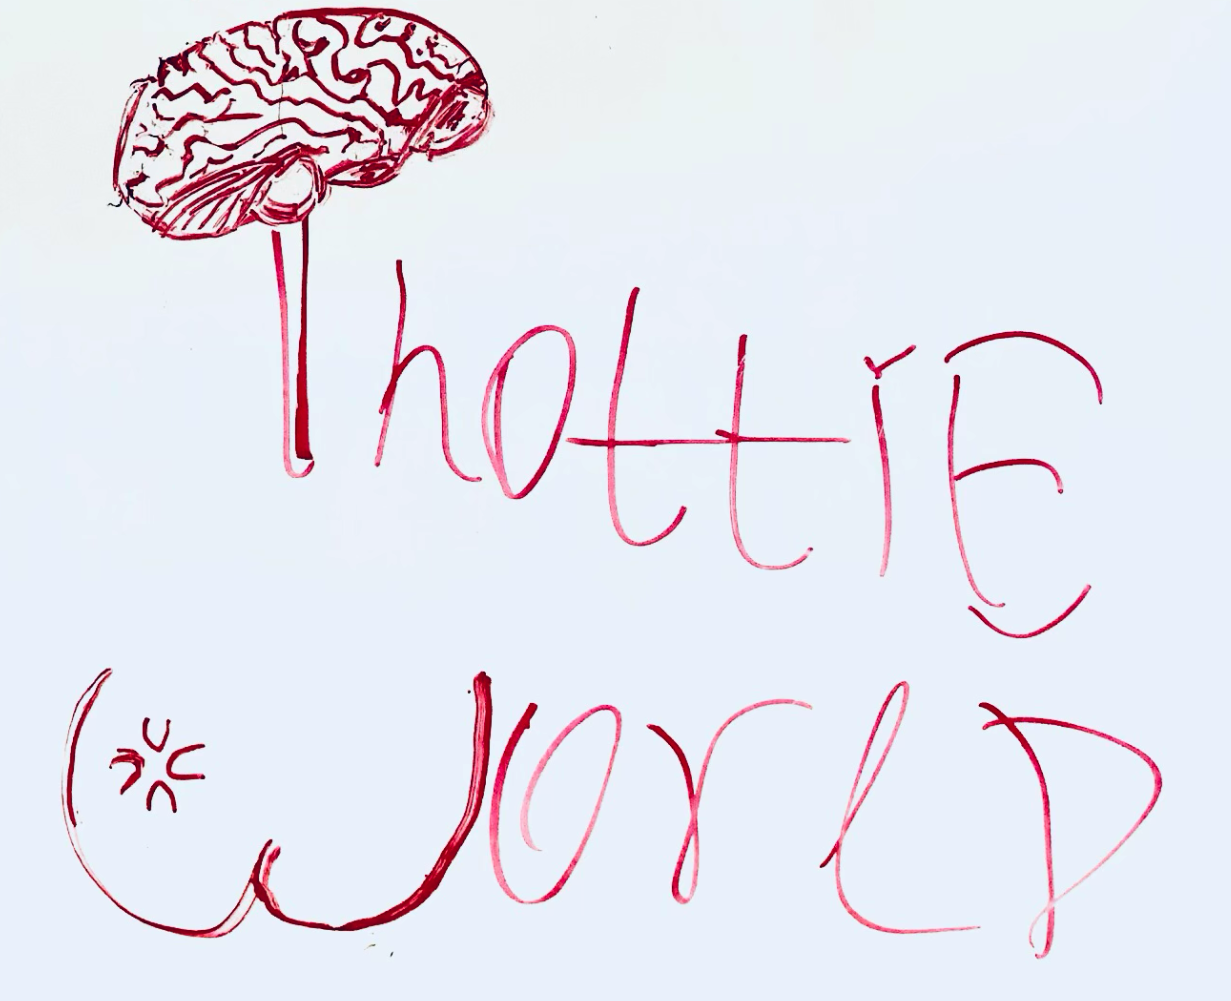 ThottiE
WorlD